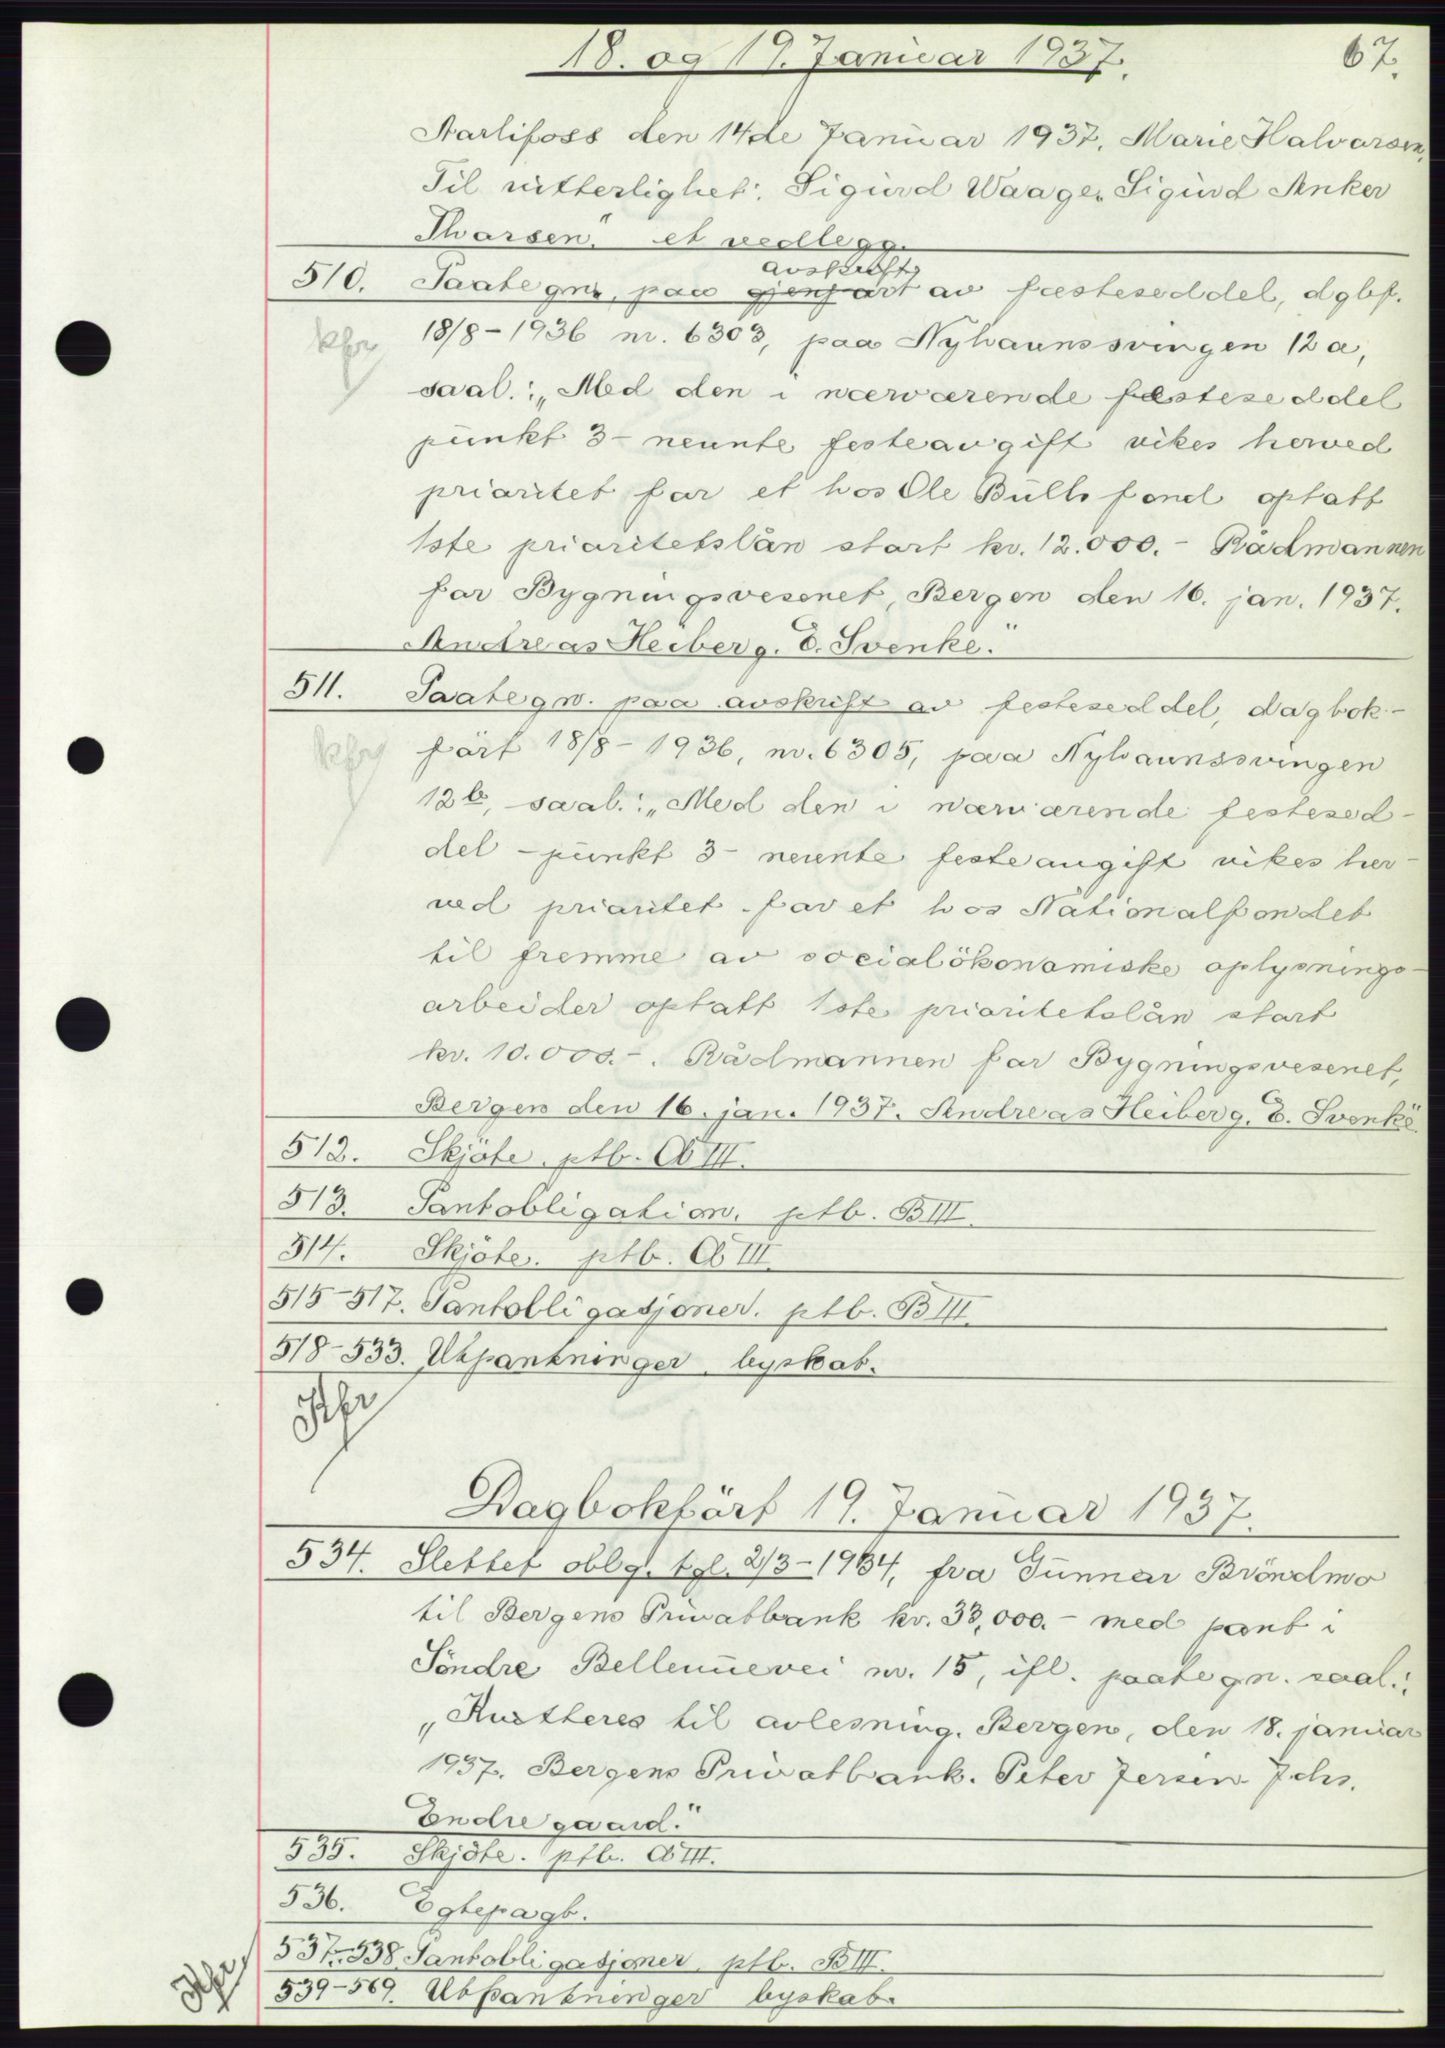 18. og 19. Januar 1937.
67.
Aarlifoss den 14de Januar 1937. Marie Halvorsen.
Til vitterlighet: Sigurd Waage. Sigurd Anker
Thorsen." et vedlegg.
avskrift
510. Paategn. paa gjenpart av fæsteseddel, dgbf.
kfr
18/8-1936 nr. 6303, paa Nyhavnssvingen 12a,
saal.: „Med den i nærværende festeseddel
punkt 3- nevnte festeavgift vikes herved
prioritet for et hos Ole Bulls fond optatt
1ste prioritetslån stort kr. 12.000.- Rådmannen
for Bygningsvesenet, Bergen den 16. jan. 1937.
Andreas Heiberg. E. Svenke."
511. Paategn. paa avskrift av festeseddel, dagbok-
kfr
ført 18/8-1936, nr. 6305, paa Nyhavnssvingen
12b, saal.: „Med den i nærværende festesed-
del -punkt 3- nevnte festeavgift vikes her-
ved prioritet for et hos Nationalfondet
til fremme av socialökonomiske oplysnings-
arbeider optatt 1ste prioritetslån stort
kr. 10.000.-. Rådmannen for Bygningsvesenet,
Bergen den 16. jan. 1937. Andreas Heiberg. E. Svenke"
512. Skjöte. ptb. Ab III.
513. Pantobligation. ptb. B III.
514. Skjöte. ptb. Ab III.
515-517. Pantobligasjoner. ptb. B III.
518-533. Utpantninger byskab.
Kfr
Dagbokfört 19. Januar 1937.
534. Slettet oblg. tgl. 2/3-1934, fra Gunnar Bröndmo
til Bergens Privatbank kr. 33,000.- med pant i
Söndre Bellevuevei nr. 15, ifl. paategn. saal.:
„Kvitteres til avlesning. Bergen, den 18. januar
1937. Bergens Privatbank. Peter Jersin Johs.
Endregaard."
535. Skjöte. ptb. Ab III.
536. Egtepagt.
537-538. Pantobligasjoner ptb. B III.
Kfr
539-569. Utpantninger byskab.